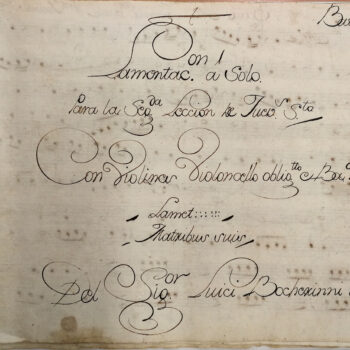 Con 1
Lamentac. a Solo.
Para la Segda Leccion de Juevs Sto
Con Violines Violoncello obligtto e Bax
Lamet:::::
Matribus suis
Del Sigor Luici Bocherinni